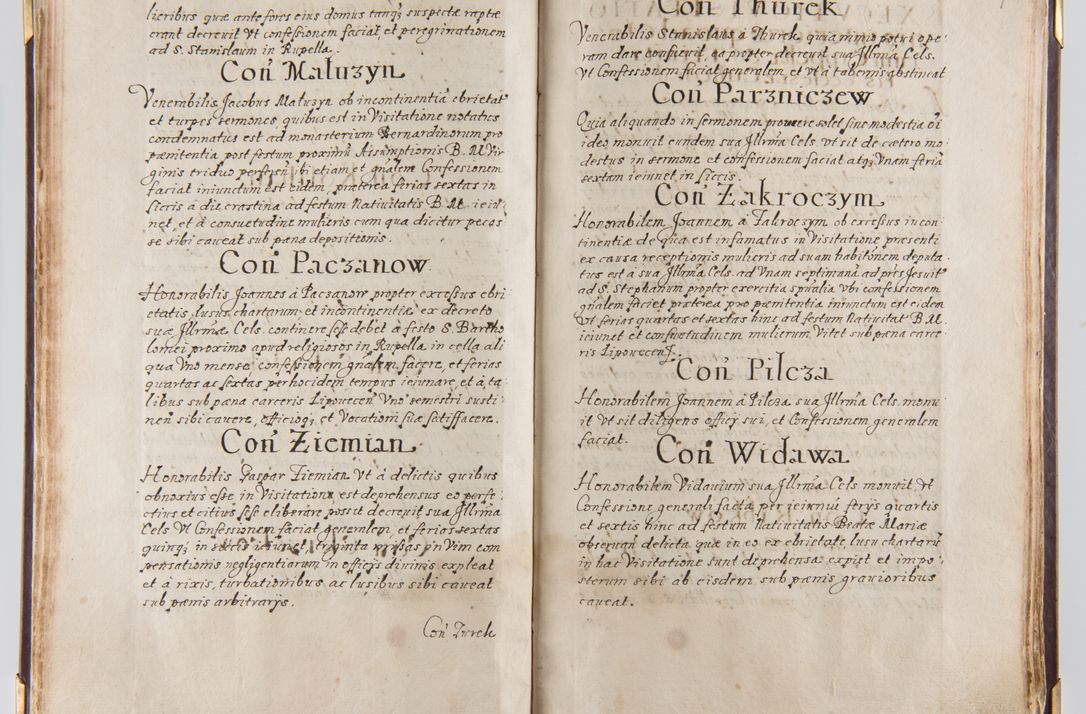 licribus quæ ante fores eius domus tanq; suspectæ raptæ
erant decreuit Vt confessionem faciat, et peregrinationem
ad S. Stanislaum in Rupella.
Con Małuzyn
Venerabilis Jacobus Małuzyn ob incontinentiã ebrietat
et turpes sermones quibus est in Visitatione notatus
condemnatus est ad monasterium Bernardinorum pro
pænitentia post festum proximũ Assumptionis B. M Vir
ginis triduo perseruẽ ibi etiam et gñalem Confessionem
faciat iniunctum est eidem, præterea ferias sextas in
siccis à die crastina ad festum Natiuitatis B. M. ieiũ
net, et à consuetudine mulieris cum qua dicitur pecas
se sibi caueat sub pæna depositionis.
Con Paczanow
Honorabilis Joannes à Pacsanow propter excessus ebri
etatis, lusus, chartarum et incontinentiæ ex decreto
suæ Jllrmæ Cels. continere sese debet à festo S. Bartho
lomei proximo apud religiosos in Rupella in cella ali
qua Vno mense, confessionem gñalem facere, et ferias
quartas ac sextas per hoc idem tempus ieiunare, et à ta
libus sub pæna carceris Lipouecen Vno semestri susti
nen sibi cauere, officioq; et Vocationi suæ satisfacere.
Con Ziemian
Honorabilis Gaspar Ziemian Vt à delictis quibus
obnoxius esse in Visitatione est deprehensus eo perfe
ctius et citius sese eliberare posset decreuit sua Jllrma
Cels. Vt Confessionem faciat generalem et ferias sextas
quinq; in siccis ieiunet, triginta missas in Vim com
pensationis negligentiarum in officijs diuinis expleat
et à rixis, turbationibus ac lusibus sibi caueat
sub pænis arbitrarijs.
Con Turek
Con Thurek
Venerabilis Stanislaus à Thurek quia nimio potui ope
ram dare consueuit, ea propter decreuit sua Jllrma Cels.
Vt Confessionem faciat generalem, et vt à tabernis abstineat
Con Parzniczew
Quia aliquando in sermonem prouere solet sine modestia ei
ideo monuit eundem sua Jllrma Cels. vt sit de cætero mo
destus in sermone et confessionem faciat atq; Vnam feriã
sextam ieiunet in siccis.
Con Zakroczym
Honorabilem Joannem à Zakroczym ob excessus incon
tinentiæ de qua est infamatus in Visitatione præsenti
ex causa receptionis mulieris ad suam habitõnem deputa
tus est à sua Jllrma Cels. ad Vnam septimanã ad pres Jesuit
ad S. Stephanum propter exercitia spũalia vbi confessionem
gñalem faciet præterea pro pænitentia iniunctum est eidem
Vt ferias quartas et sextas hinc ad festum Natiuitat B. M.
ieiunet et consuetudinem mulierum Vitet sub pæna carce
ris Lipouecen.
Con Pilcza
Honorabilem Joannem à Pilcza sua Jllrma Cels. monu
it Vt sit diligens officij sui, et Confessionem generalem
faciat.
Con Widawa
Honorabilem Vidauium sua Jllrma Cels. monuit, vt
Confessione generali facta per ieiuniũ ferijs quartis
et sextis hinc ad festum Natiuitatis Beatæ Mariæ
obseruan delicta quæ in eo ex ebrietate, lusu chartarũ
in hac Visitatione sunt deprehensa expiet et impo
sterum sibi ab eisdem sub pænis grauioribus
caueat.